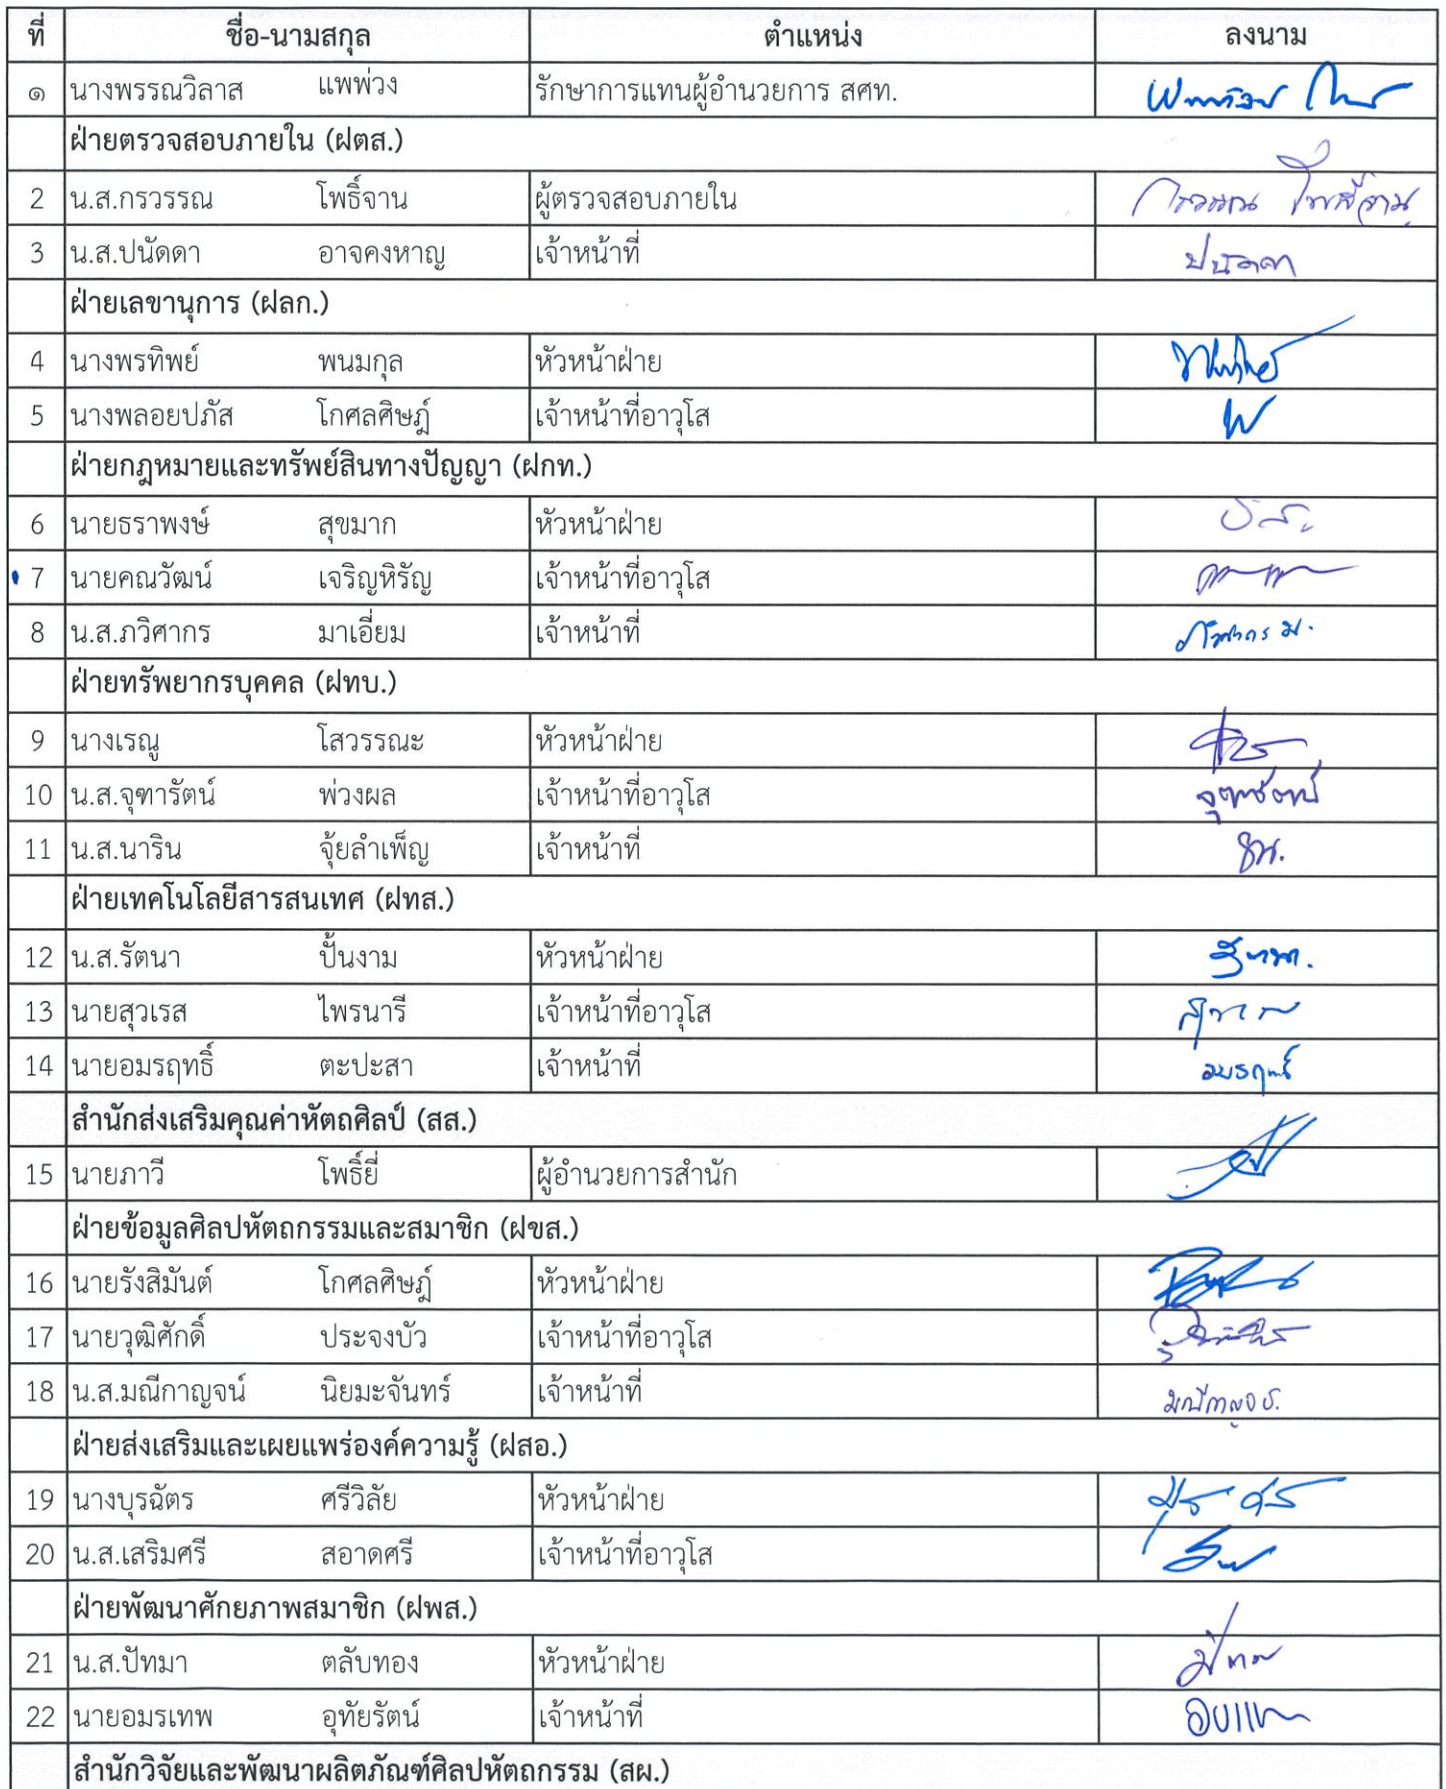 ที่ ชื่อ-นามสกุล ตำแหน่ง ลงนาม
๑ นางพรรณวิลาส แพพ่วง รักษาการแทนผู้อำนวยการ สศท.
ฝ่ายตรวจสอบภายใน (ฝตส.)
2 น.ส.กรวรรณ โพธิ์จาน ผู้ตรวจสอบภายใน กรวรรณ โพธิ์จาน
3 น.ส.ปนัดดา อาจคงหาญ เจ้าหน้าที่ ปนัดดา
ฝ่ายเลขานุการ (ฝลก.)
4 นางพรทิพย์ พนมกุล หัวหน้าฝ่าย
5 นางพลอยปภัส โกศลศิษฎ์ เจ้าหน้าที่อาวุโส
ฝ่ายกฎหมายและทรัพย์สินทางปัญญา (ฝกท.)
6 นายธราพงษ์ สุขมาก หัวหน้าฝ่าย
7 นายคณวัฒน์ เจริญหิรัญ เจ้าหน้าที่อาวุโส
8 น.ส.ภวิศากร มาเอี่ยม เจ้าหน้าที่ ภวิศากร ม.
ฝ่ายทรัพยากรบุคคล (ฝทบ.)
9 นางเรณู โสวรรณะ หัวหน้าฝ่าย
10 น.ส.จุฑารัตน์ พ่วงผล เจ้าหน้าที่อาวุโส จุฑารัตน์
11 น.ส.นาริน จุ้ยลำเพ็ญ เจ้าหน้าที่
ฝ่ายเทคโนโลยีสารสนเทศ (ฝทส.)
12 น.ส.รัตนา ปั้นงาม หัวหน้าฝ่าย
13 นายสุวเรส ไพรนารี เจ้าหน้าที่อาวุโส
14 นายอมรฤทธิ์ ตะปะสา เจ้าหน้าที่ อมรฤทธิ์
สำนักส่งเสริมคุณค่าหัตถศิลป์ (สส.)
15 นายภาวี โพธิ์ยี่ ผู้อำนวยการสำนัก
ฝ่ายข้อมูลศิลปหัตถกรรมและสมาชิก (ฝขส.)
16 นายรังสิมันต์ โกศลศิษฎ์ หัวหน้าฝ่าย
17 นายวุฒิศักดิ์ ประจงบัว เจ้าหน้าที่อาวุโส
18 น.ส.มณีกาญจน์ นิยมะจันทร์ เจ้าหน้าที่ มณีกาญจน์
ฝ่ายส่งเสริมและเผยแพร่องค์ความรู้ (ฝสอ.)
19 นางบุรฉัตร ศรีวิลัย หัวหน้าฝ่าย
20 น.ส.เสริมศรี สอาดศรี เจ้าหน้าที่อาวุโส
ฝ่ายพัฒนาศักยภาพสมาชิก (ฝพส.)
21 น.ส.ปัทมา ตลับทอง หัวหน้าฝ่าย
22 นายอมรเทพ อุทัยรัตน์ เจ้าหน้าที่
สำนักวิจัยและพัฒนาผลิตภัณฑ์ศิลปหัตถกรรม (สผ.)